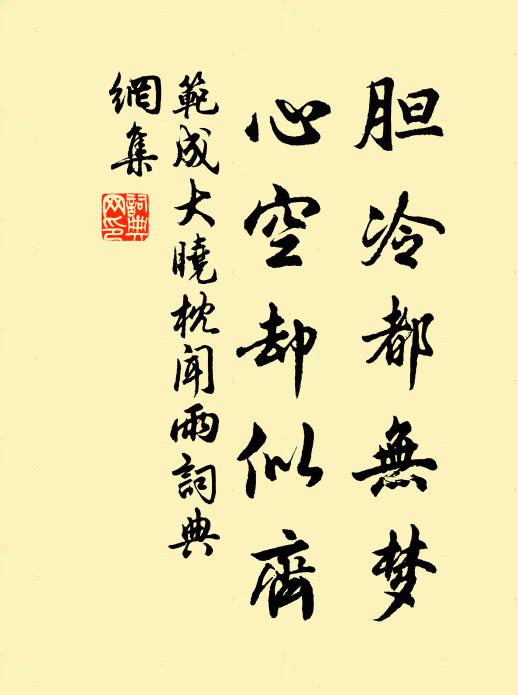 胆冷都無梦
心空却似齊
範成大曉枕聞雨詞典
網集
詞典
网印